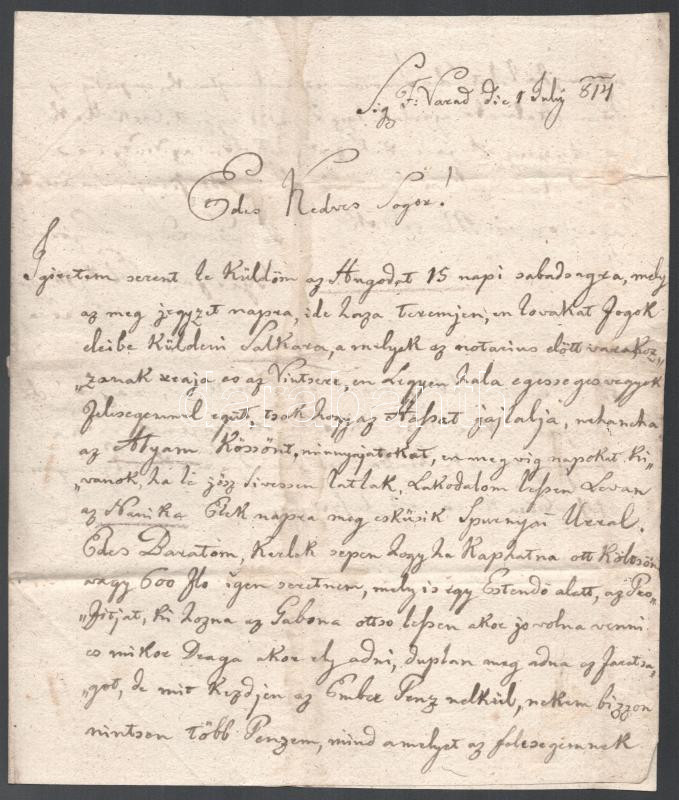 Sig F: Varad die 1 July 814
Edes Kedves Sogor!
Igiretem szerent le Küldöm az Angodat 15 napi sabadsagra, mely
az meg jegyzet napra, ide hoza teremjen, en lovakat fogok
eleibe Küldeni Salkara, a melyek az notarius elött varakoz„
„zanak reaja es az Vintsere, en Legyen hala egesseges vagyok
felesegemmel egütt, tsak hogy az Hassat fajlalja, nehancha
az Atyam Kössönt, minnyajatokat, en meg vig napokat ki„
„vanok, ha le jösz Sivessen latlak, Lakodalom lessen Levan
az Nanika Elek napra meg esküsik Spurnyai Urral.
Edes Baratom, Kerlek sepen hogy ha Kaphatna ott Kölcsön
vagy 600 flo igen seretnem, mely is egy Estendö alatt, az Pro„
„fitjat, ki hozna az Gabona ottso lessen akor jo volna venni
es mikor Draga akor el adni, duplan meg adna ez faratsa„
„got, de mit Kezdjen az Ember Penz nelkül, nekem bizzon
nintsen több Penzem, mind a melyet az felesegemnek
darabanth